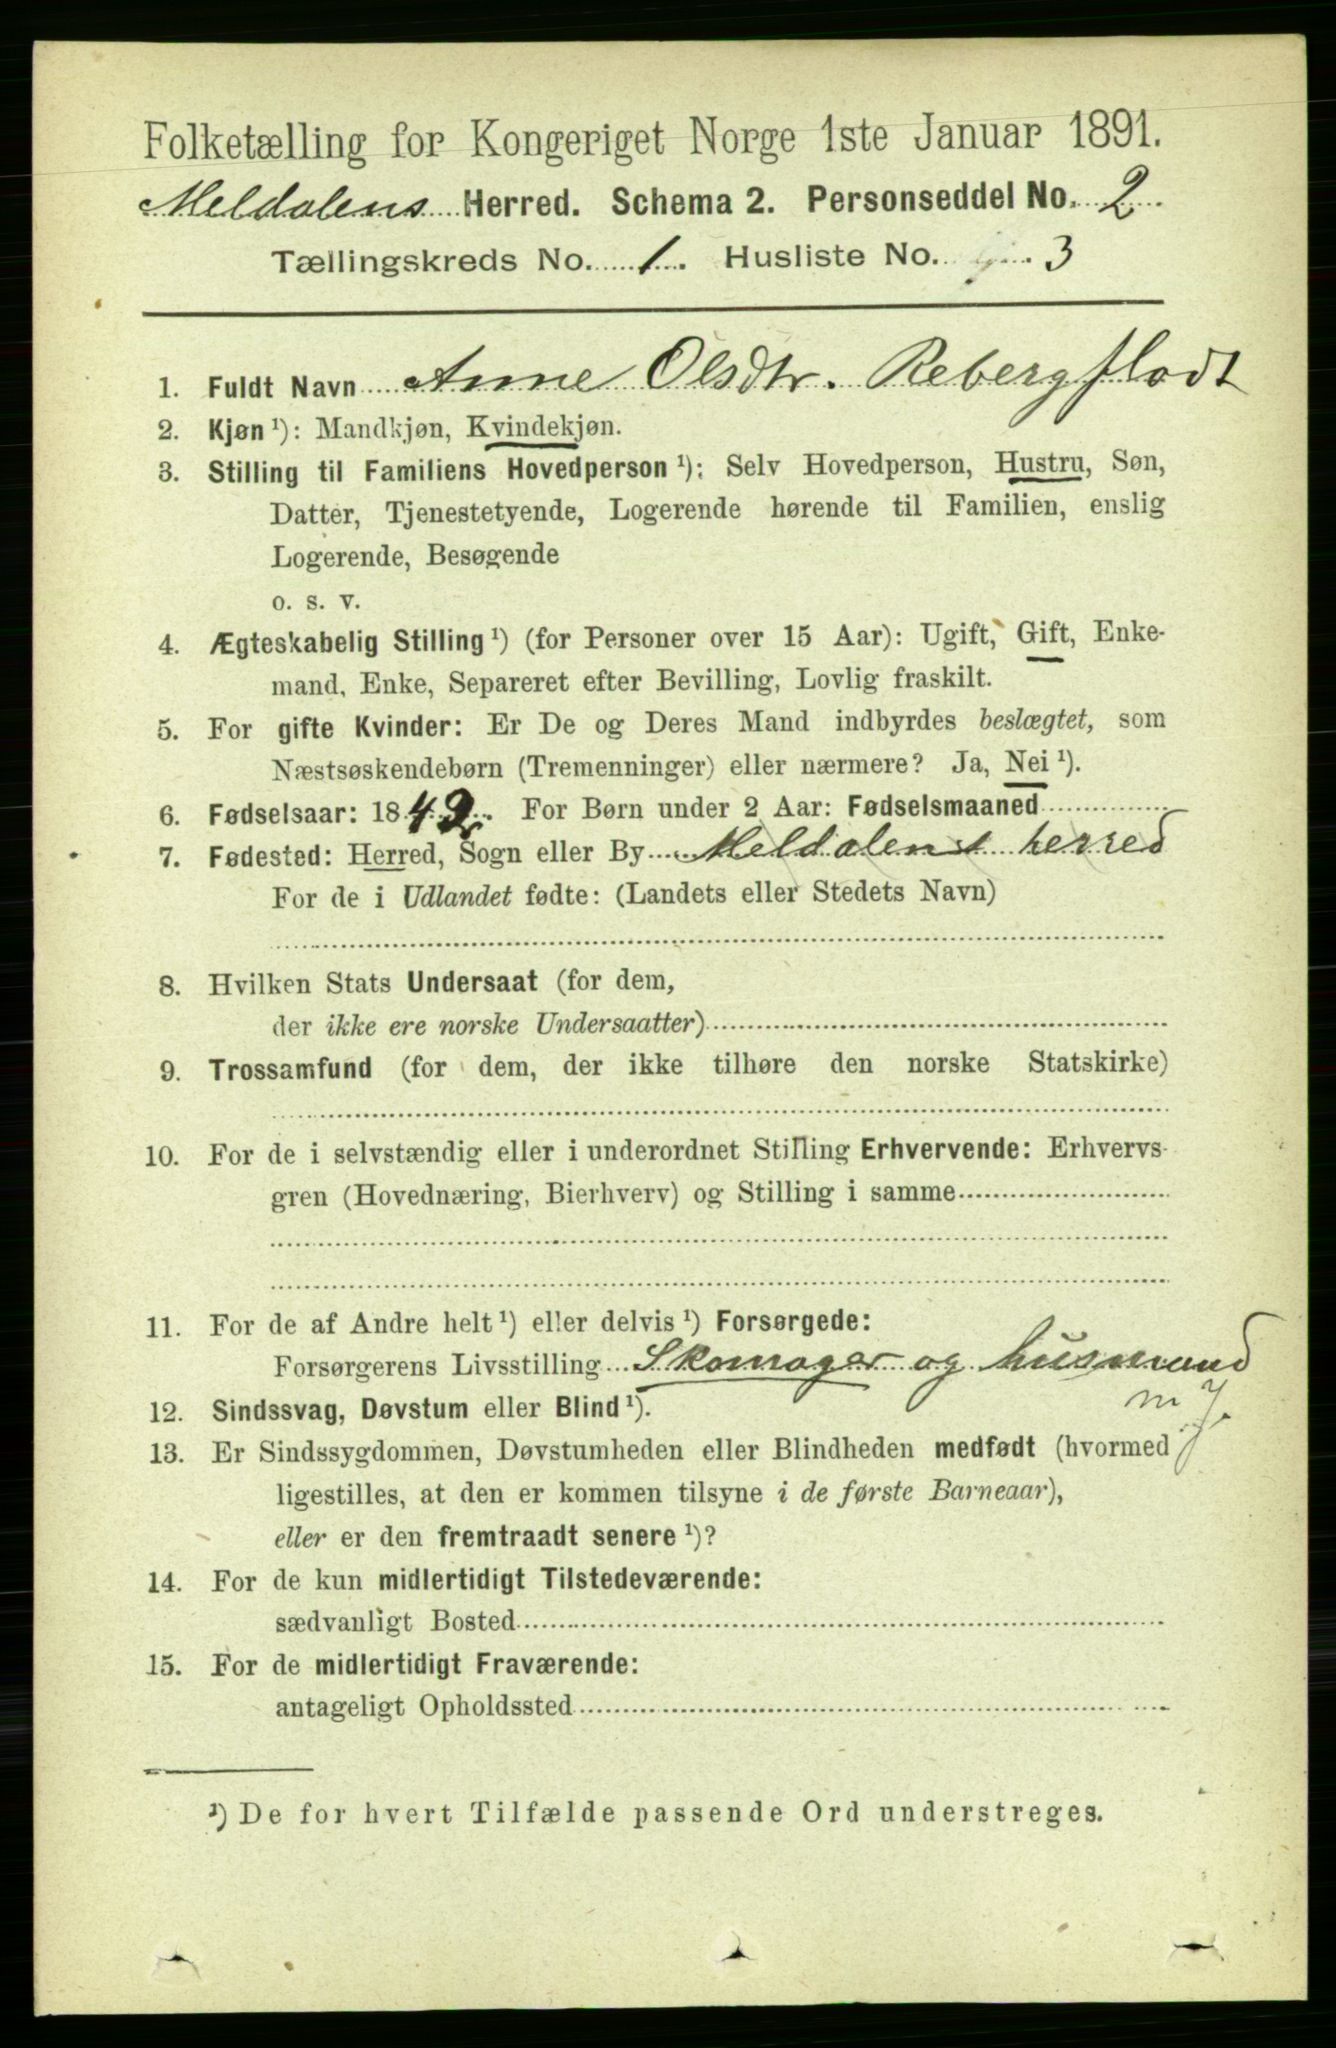 Folketælling for Kongeriget Norge 1ste Januar 1891.
Meldalens Herred. Schema 2. Personseddel No. 2
Tællingskreds No. 1. Husliste No. 3
1. Fuldt Navn Anne Olsdtr. Rebergflodt
2. Kjøn ¹): Mandkjøn, Kvindekjøn.
3. Stilling til Familiens Hovedperson ¹): Selv Hovedperson, Hustru, Søn,
Datter, Tjenestetyende, Logerende hørende til Familien, enslig
Logerende, Besøgende
o. s. v.
4. Ægteskabelig Stilling ¹) (for Personer over 15 Aar): Ugift, Gift, Enke-
mand, Enke, Separeret efter Bevilling, Lovlig fraskilt.
5. For gifte Kvinder: Er De og Deres Mand indbyrdes beslægtet, som
Næstsøskendebørn (Tremenninger) eller nærmere? Ja, Nei ¹).
6. Fødselsaar: 1843. For Børn under 2 Aar: Fødselsmaaned
7. Fødested: Herred, Sogn eller By Meldalens herred
For de i Udlandet fødte: (Landets eller Stedets Navn)
8. Hvilken Stats Undersaat (for dem,
der ikke ere norske Undersaatter)
9. Trossamfund (for dem, der ikke tilhøre den norske Statskirke)
10. For de i selvstændig eller i underordnet Stilling Erhvervende: Erhvervs-
gren (Hovednæring, Bierhverv) og Stilling i samme
11. For de af Andre helt ¹) eller delvis ¹) Forsørgede:
Forsørgerens Livsstilling Skomager og husmand
m J.
12. Sindssvag, Døvstum eller Blind ¹).
13. Er Sindssygdommen, Døvstumheden eller Blindheden medfødt (hvormed
ligestilles, at den er kommen tilsyne i de første Barneaar),
eller er den fremtraadt senere ¹)?
14. For de kun midlertidigt Tilstedeværende:
sædvanligt Bosted
15. For de midlertidigt Fraværende:
antageligt Opholdssted
¹) De for hvert Tilfælde passende Ord understreges.